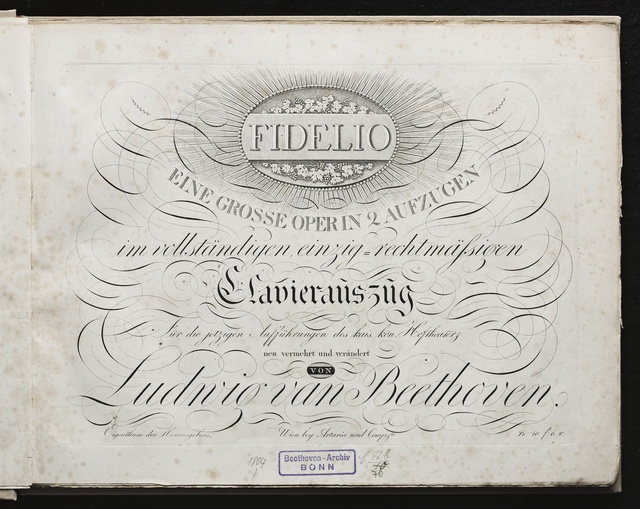 FIDELIO
EINE GROSSE OPER IN 2 AUFZUGEN
im vollständigen, einzig=rechtmäßigen
Clavierauszug
Für die jetzigen Aufführungen des kais. kön. Hoftheaters
neu vermehrt und verändert
VON
Ludwig van Beethoven.
Eigenthum des Herausgebers. Wien bey Artaria und Comp.
Beethoven-Archiv
BONN